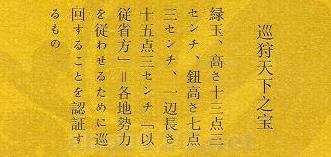 巡狩天下之宝
緑玉、高さ十三点三
センチ、鈕高さ七点
三センチ、一辺長さ
十五点三センチ「以
従省方」＝各地勢力
を従わせるために巡
回することを認証す
るもの